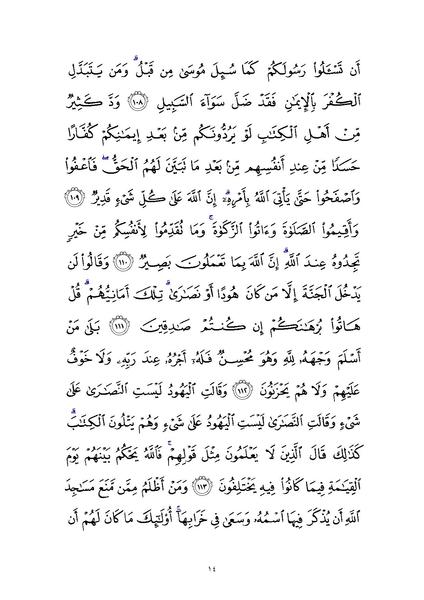 أَن تَسْـَٔلُوا۟ رَسُولَكُمْ كَمَا سُئِلَ مُوسَىٰ مِن قَبْلُ ۗ وَمَن يَتَبَدَّلِ
ٱلْكُفْرَ بِٱلْإِيمَٰنِ فَقَدْ ضَلَّ سَوَآءَ ٱلسَّبِيلِ ﴿١٠٨﴾ وَدَّ كَثِيرٌ
مِّنْ أَهْلِ ٱلْكِتَٰبِ لَوْ يَرُدُّونَكُم مِّنۢ بَعْدِ إِيمَٰنِكُمْ كُفَّارًا
حَسَدًا مِّنْ عِندِ أَنفُسِهِم مِّنۢ بَعْدِ مَا تَبَيَّنَ لَهُمُ ٱلْحَقُّ ۖ فَٱعْفُوا۟
وَٱصْفَحُوا۟ حَتَّىٰ يَأْتِىَ ٱللَّهُ بِأَمْرِهِۦٓ ۗ إِنَّ ٱللَّهَ عَلَىٰ كُلِّ شَىْءٍ قَدِيرٌ ﴿١٠٩﴾
وَأَقِيمُوا۟ ٱلصَّلَوٰةَ وَءَاتُوا۟ ٱلزَّكَوٰةَ ۚ وَمَا تُقَدِّمُوا۟ لِأَنفُسِكُم مِّنْ خَيْرٍ
تَجِدُوهُ عِندَ ٱللَّهِ ۗ إِنَّ ٱللَّهَ بِمَا تَعْمَلُونَ بَصِيرٌ ﴿١١٠﴾ وَقَالُوا۟ لَن
يَدْخُلَ ٱلْجَنَّةَ إِلَّا مَن كَانَ هُودًا أَوْ نَصَٰرَىٰ ۗ تِلْكَ أَمَانِيُّهُمْ ۗ قُلْ
هَاتُوا۟ بُرْهَٰنَكُمْ إِن كُنتُمْ صَٰدِقِينَ ﴿١١١﴾ بَلَىٰ مَنْ
أَسْلَمَ وَجْهَهُۥ لِلَّهِ وَهُوَ مُحْسِنٌ فَلَهُۥٓ أَجْرُهُۥ عِندَ رَبِّهِۦ وَلَا خَوْفٌ
عَلَيْهِمْ وَلَا هُمْ يَحْزَنُونَ ﴿١١٢﴾ وَقَالَتِ ٱلْيَهُودُ لَيْسَتِ ٱلنَّصَٰرَىٰ عَلَىٰ
شَىْءٍ وَقَالَتِ ٱلنَّصَٰرَىٰ لَيْسَتِ ٱلْيَهُودُ عَلَىٰ شَىْءٍ وَهُمْ يَتْلُونَ ٱلْكِتَٰبَ ۗ
كَذَٰلِكَ قَالَ ٱلَّذِينَ لَا يَعْلَمُونَ مِثْلَ قَوْلِهِمْ ۚ فَٱللَّهُ يَحْكُمُ بَيْنَهُمْ يَوْمَ
ٱلْقِيَٰمَةِ فِيمَا كَانُوا۟ فِيهِ يَخْتَلِفُونَ ﴿١١٣﴾ وَمَنْ أَظْلَمُ مِمَّن مَّنَعَ مَسَٰجِدَ
ٱللَّهِ أَن يُذْكَرَ فِيهَا ٱسْمُهُۥ وَسَعَىٰ فِى خَرَابِهَآ ۚ أُو۟لَٰٓئِكَ مَا كَانَ لَهُمْ أَن
١٤